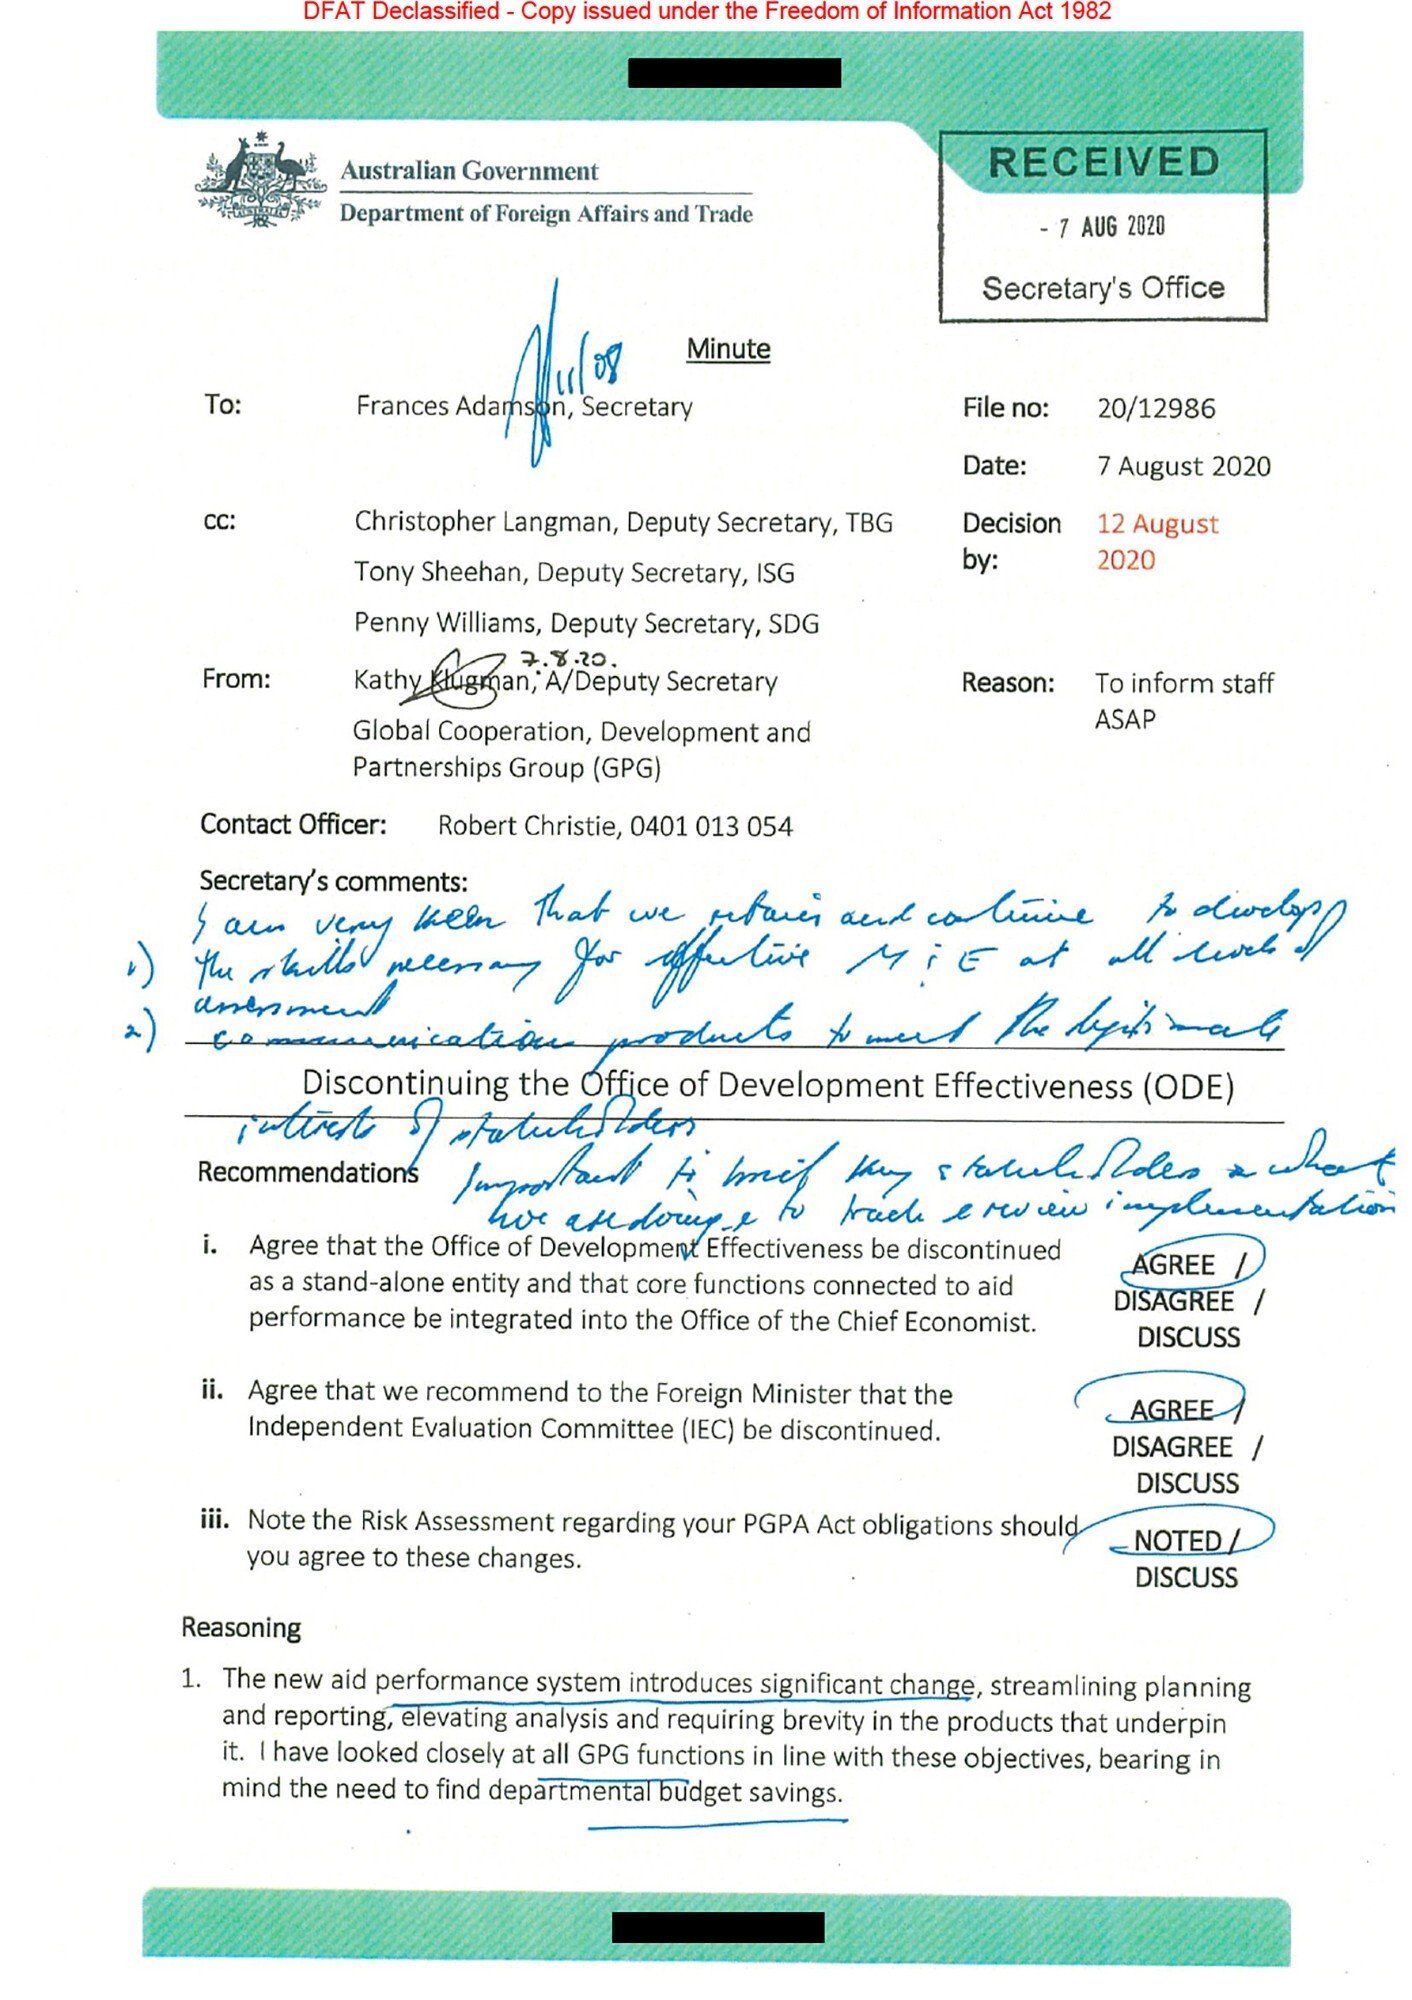 DFAT Declassified - Copy issued under the Freedom of Information Act 1982
Australian Government
Department of Foreign Affairs and Trade
RECEIVED
- 7 AUG 2020
Secretary's Office
Minute
11/08
To: Frances Adamson, Secretary
File no: 20/12986
Date: 7 August 2020
cc: Christopher Langman, Deputy Secretary, TBG
Decision by: 12 August 2020
Tony Sheehan, Deputy Secretary, ISG
Penny Williams, Deputy Secretary, SDG
7.8.20.
From: Kathy Klugman, A/Deputy Secretary
Reason: To inform staff ASAP
Global Cooperation, Development and
Partnerships Group (GPG)
Contact Officer: Robert Christie, 0401 013 054
Secretary's comments:
I am very keen that we retain and continue to develop
1) the skills necessary for effective M & E at all levels of
assessment
2) communication products to meet the legitimate
Discontinuing the Office of Development Effectiveness (ODE)
interests of stakeholders
Recommendations
Important to brief key stakeholders on what
we are doing & to track & review implementation
i. Agree that the Office of Development Effectiveness be discontinued
as a stand-alone entity and that core functions connected to aid
performance be integrated into the Office of the Chief Economist.
AGREE /
DISAGREE /
DISCUSS
ii. Agree that we recommend to the Foreign Minister that the
Independent Evaluation Committee (IEC) be discontinued.
AGREE /
DISAGREE /
DISCUSS
iii. Note the Risk Assessment regarding your PGPA Act obligations should
you agree to these changes.
NOTED /
DISCUSS
Reasoning
1. The new aid performance system introduces significant change, streamlining planning
and reporting, elevating analysis and requiring brevity in the products that underpin
it. I have looked closely at all GPG functions in line with these objectives, bearing in
mind the need to find departmental budget savings.